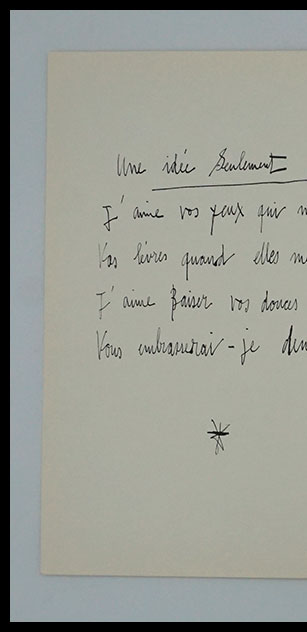 Une idée Seulement
J'aime vos yeux qui
Vos lèvres quand elles
J'aime Baiser vos douces
Vous embrasserai-je